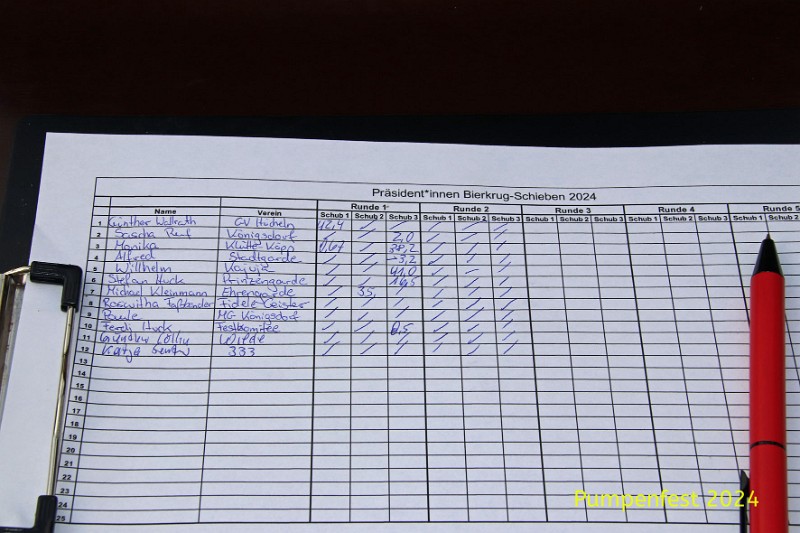 Präsident*innen Bierkrug-Schieben 2024
Name Verein Runde 1 Runde 2 Runde 3 Runde 4 Runde 5
Schub 1 Schub 2 Schub 3 Schub 1 Schub 2 Schub 3 Schub 1 Schub 2 Schub 3 Schub 1 Schub 2 Schub 3 Schub 1 Schub 2
1 Günther Wallrath GV Hücheln 12,4 / / / / /
2 Sascha Königsdorf / / 2,0 / / /
3 Monika Klütte Köpp 0,67 / 38,2 / / /
4 Alfred Stadtgarde / / 3,2 / / /
5 Willhelm / / 41,0 / – /
6 Stefan Huck Prinzengarde / / 16,5 / / /
7 Michael Kleinmann Ehrengarde / 35, / / / /
8 Roswitha Faßbender Fidele Geister / / / / / /
9 Paule MG Königsdorf / / / / / /
10 Ferdi Huck Festkomitee / / 6,5 / / /
11 Wilde / / / / / /
12 Katja 333 / / / / / /
13
14
15
16
17
18
19
20
21
22
23
24
25
Pumpenfest 2024